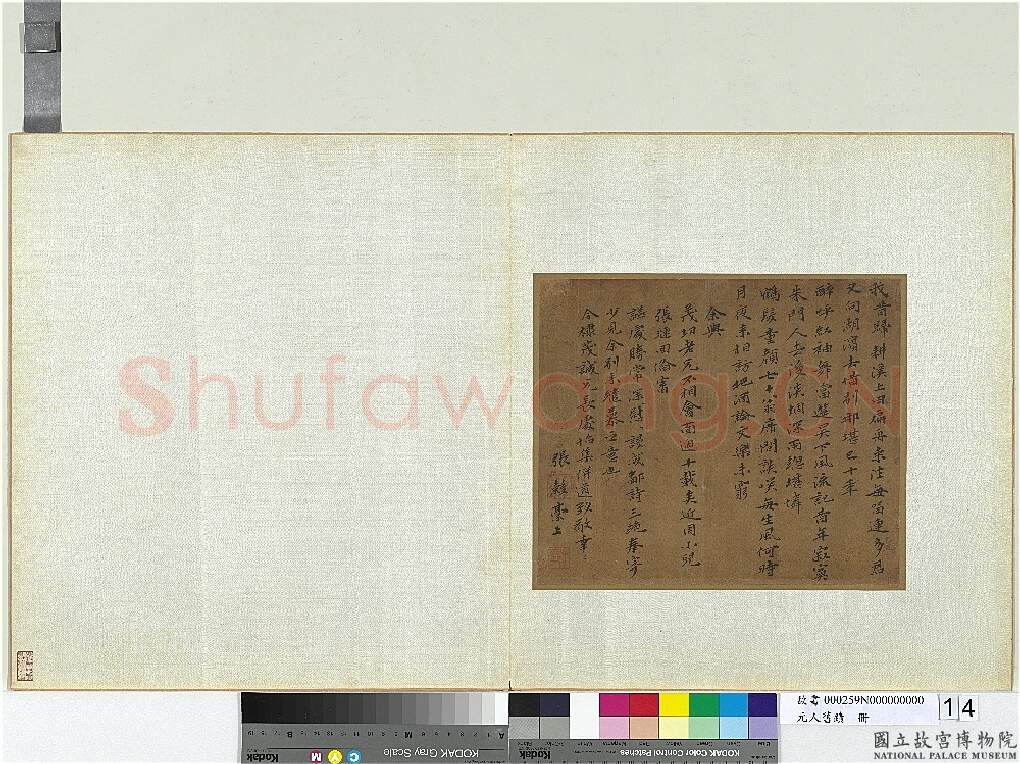 我昔歸耕溪上田扁舟來往每留連多君
又向湖濱去惜別那堪又十年
醉呼紅袖舞當筵吳下風流記昔年寂寞
朱門人去後淡烟深雨總堪憐
鶴髮童顏七十翁席間談笑每生風何時
月夜來相訪把酒論文樂未窮
余與
茂初老兄不相會面過十載矣近因小兒
張璉回洛審
諸處勝常深慰謾成鄙詩三絕奉寄
少見余別季繾綣之意也
令棣茂誠兄長處怡集併道致敬幸幸
張 稿上
Shufawang.CN
KODAK Gray Scale
Kodak
M
Y
C
A
M
B
Kodak
KODAK Color Control Patches
故書 000259N000000000
元人舊蹟 冊
14
國立故宮博物院
NATIONAL PALACE MUSEUM